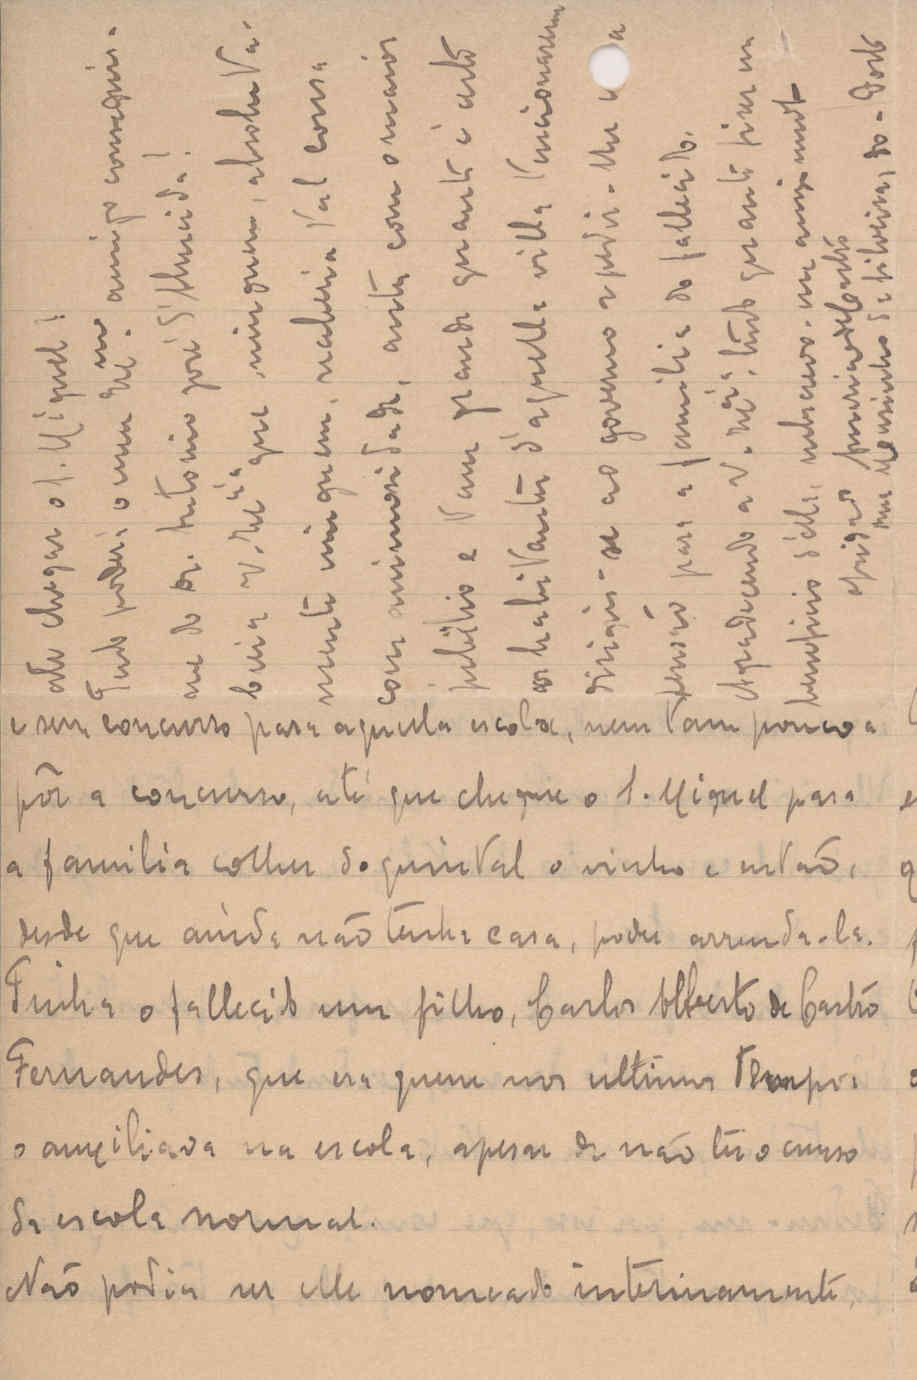 e sem concurso para aquella escola, nem tam pouco a
pôr a concurso, até que chegue o S. Miguel para
a familia colher do quintal o vinho e então,
desde que ainda não tenha casa, poder arrenda-la.
Tinha o fallecido um filho, Carlos Alberto de Castro
Fernandes, que era quem nos ultimos tempos
o auxiliava na escola, apesar de não ter o curso
da escola normal.
Não podia ser elle nomeado interinamente,
até chegar o S. Miguel?
Tudo poderá o meu Exmo. amigo conseguir
me do Dr. Antonio José d'Almeida!
beria V. Excia que ninguem, absoluta-
mente ninguem, saberia tal cousa
com animosidade, antes com o maior
jubilo e tam grande quanto é certo
os habitantes d'aquella villa tencionarem
dirigir-se ao governo a pedir-lhe a
pensão para a familia do fallecido.
Agradecendo a V. Excia, tudo quanto fizer em
beneficio d'ella, subscrevo-me
Mousinho da Silveira,